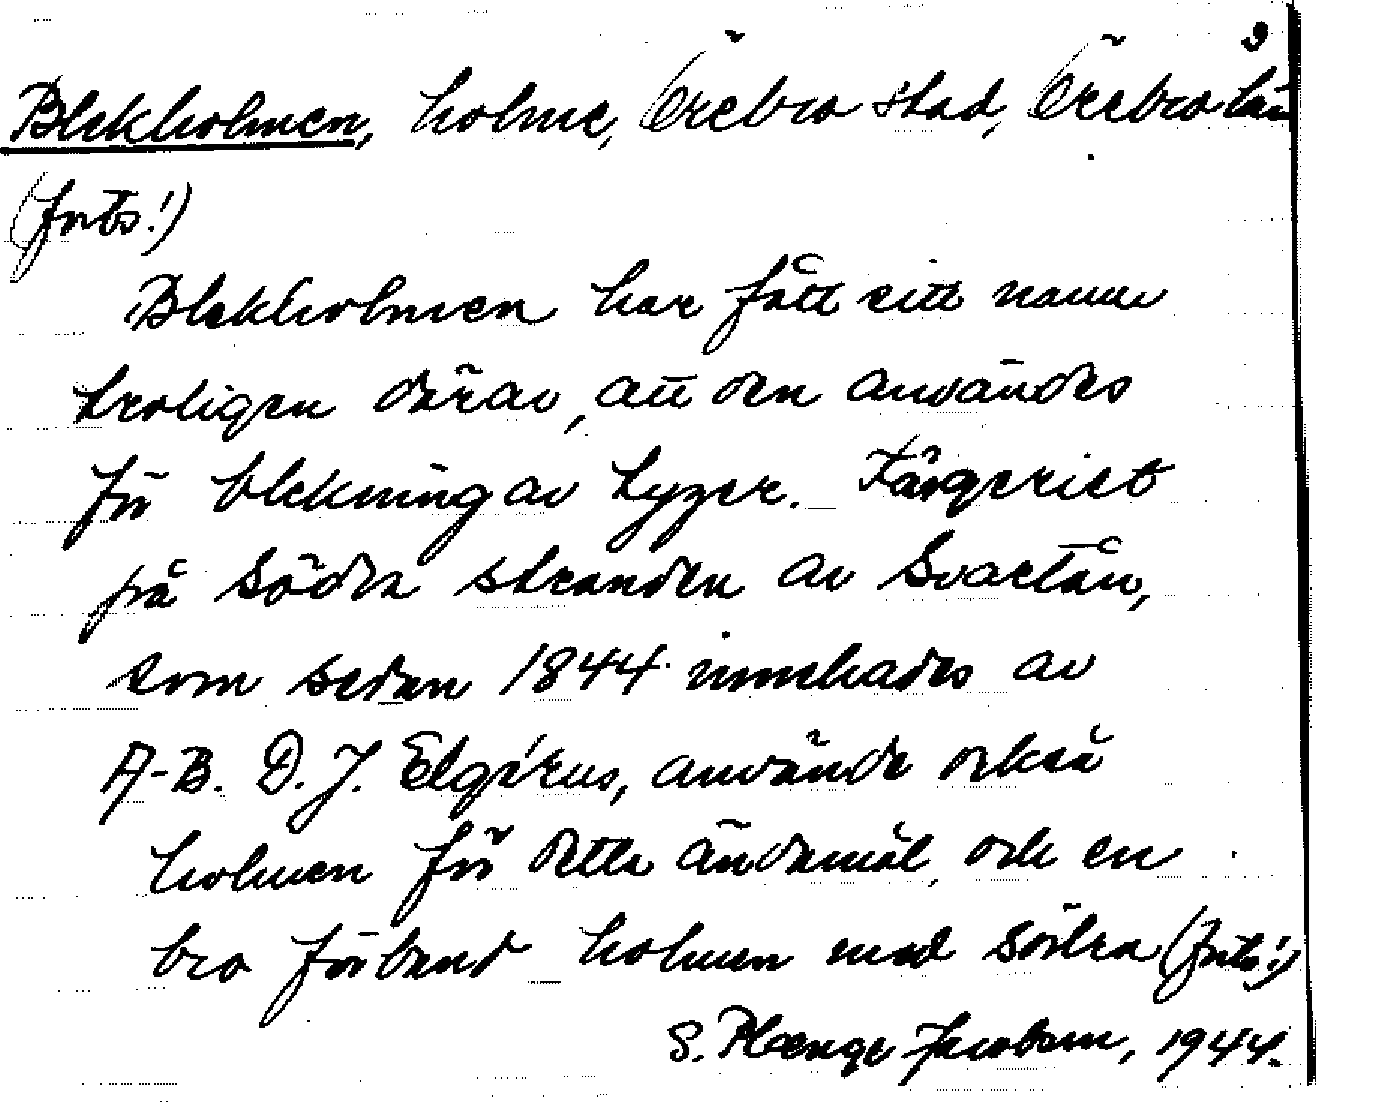 3
Blekholmen, holme, Örebro stad, Örebro län
(forts!)
Blekholmen har fått sitt namn
troligen därav, att den användes
för blekning av tyger. Färgeriet
på södra stranden av Svartån,
som sedan 1844 innehades av
A-B. D. J. Elgérus, använde också
holmen för detta ändamål, och en
bro förband holmen med södra (forts!)
S. Plænge Jacobson, 1944.